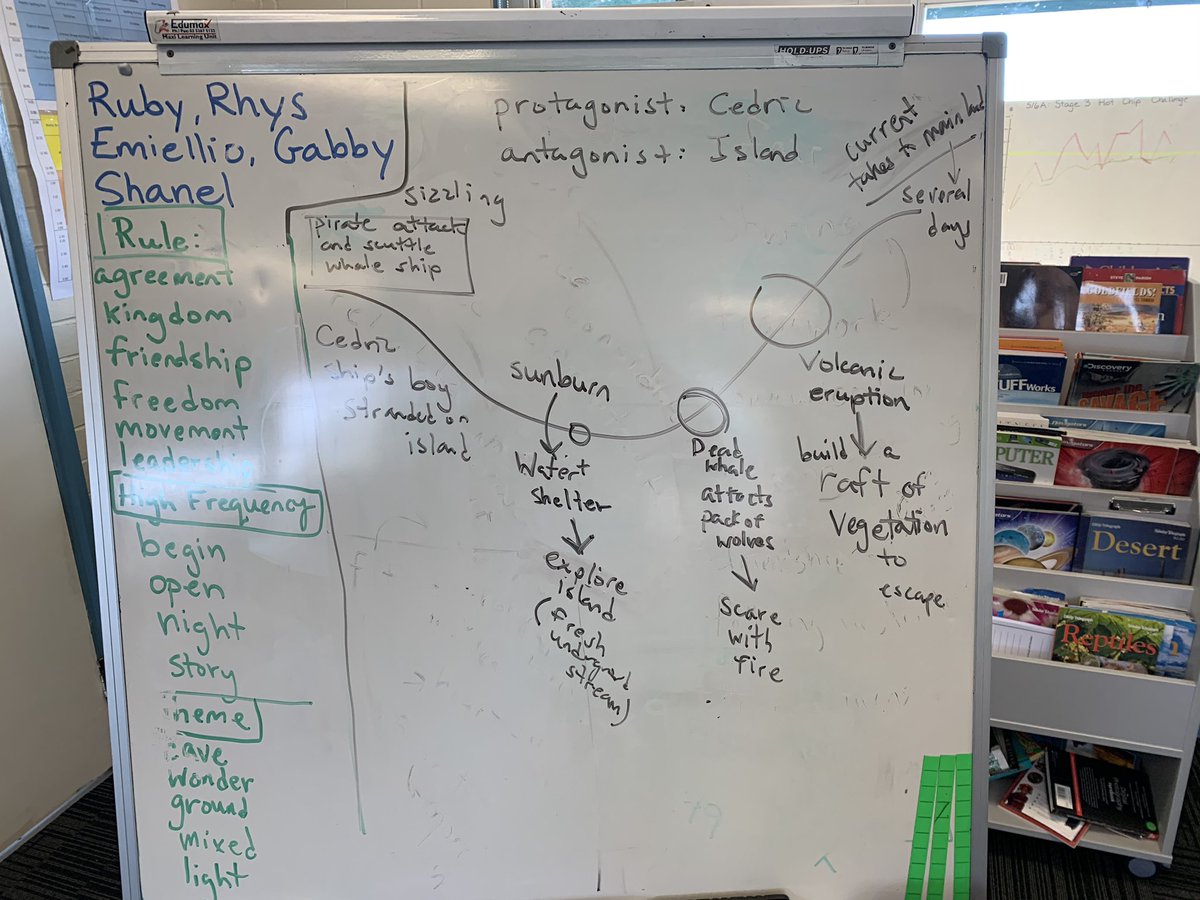 Edumax
Maxi Learning Unit
HOLD-UPS
Ruby, Rhys
Emiellio, Gabby
Shanel
Rule:
agreement
kingdom
friendship
freedom
movement
leadership
High Frequency
begin
open
night
story
neme
wonder
ground
mixed
light
sizzling
pirate attack
and scuttle
whale ship
Cedric
ship's boy
stranded on
island
protagonist: Cedric
antagonist: Island
sunburn
Water +
shelter
explore
island
(fresh
stream)
Dead
whale
pack of
wolves
scare
with
fire
Volcanic
eruption
build a
raft of
vegetation
to
escape
current
takes to mainland
several
days
5/6A: Stage 3 Hot Chip Challenge
GOLDFIELDS!
Discovery
SAVAGE
UFFWorks
PUTER
Desert
Reptiles